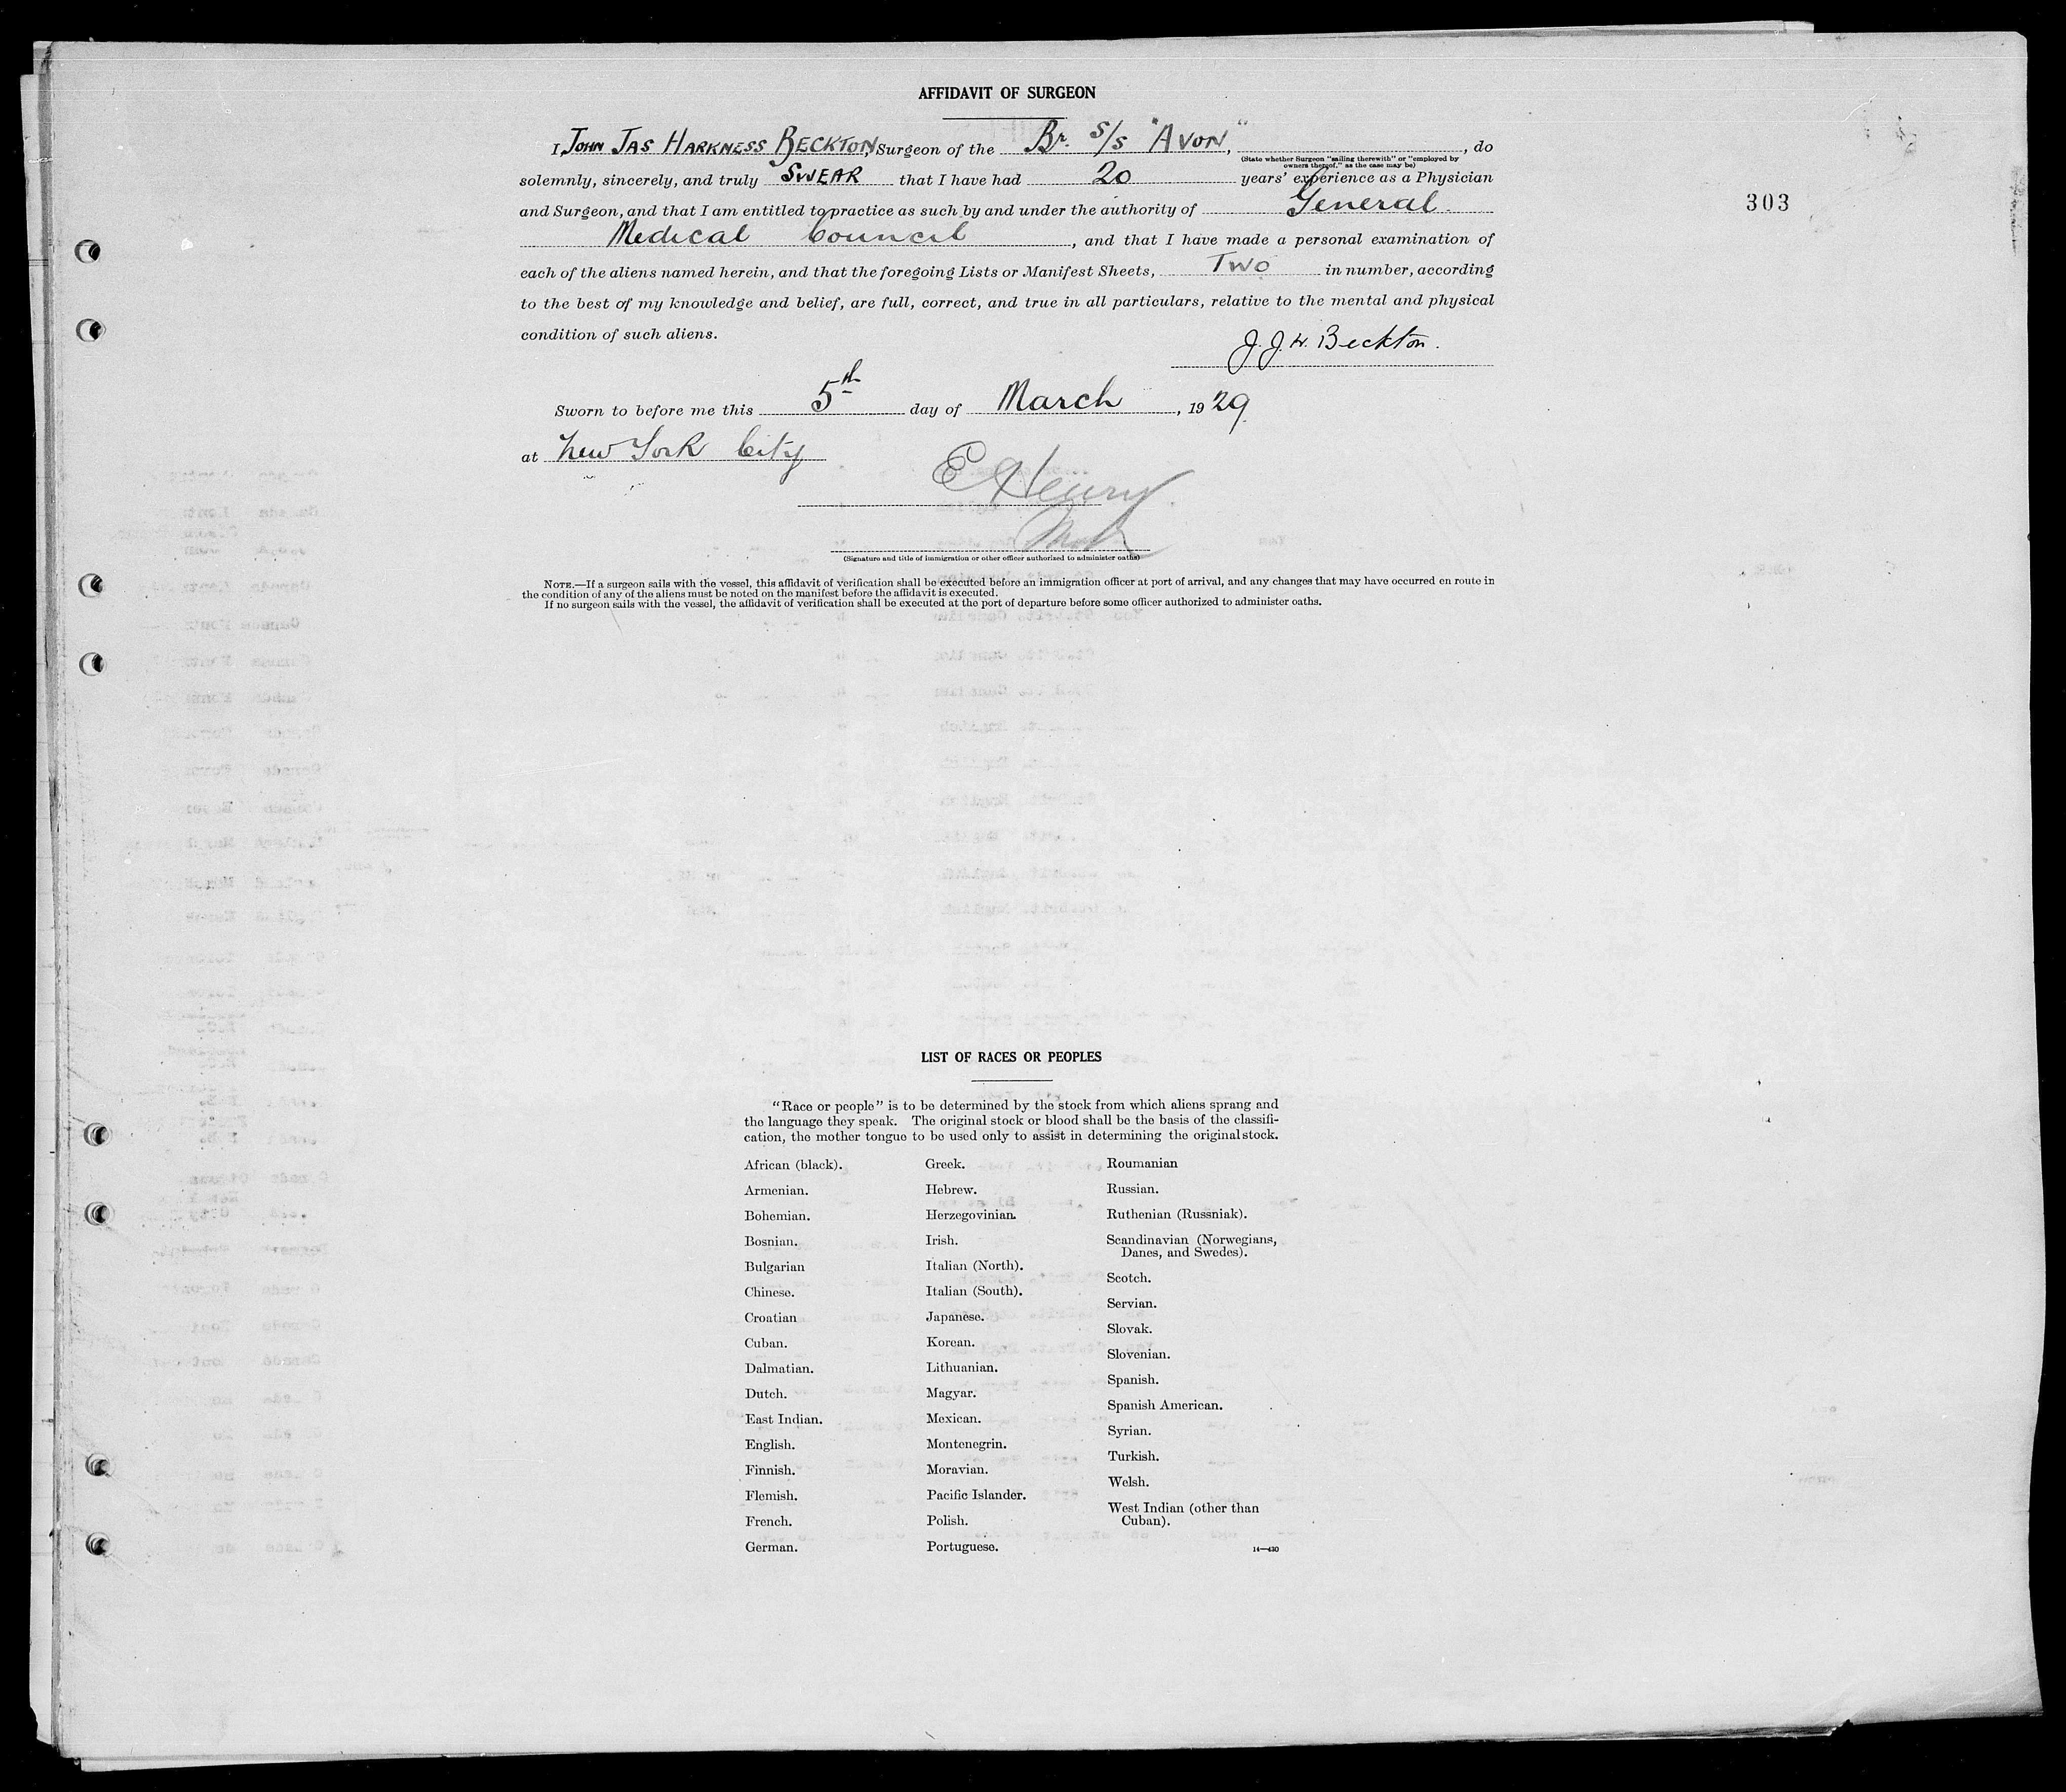 AFFIDAVIT OF SURGEON
I, JOHN JAS HARKNESS BECKTON, Surgeon of the Br. S/S "AVON", , do
(State whether Surgeon "sailing therewith" or "employed by
owners thereof," as the case may be)
solemnly, sincerely, and truly SWEAR that I have had 20 years' experience as a Physician
and Surgeon, and that I am entitled to practice as such by and under the authority of General
303
Medical Council, and that I have made a personal examination of
each of the aliens named herein, and that the foregoing Lists or Manifest Sheets, Two in number, according
to the best of my knowledge and belief, are full, correct, and true in all particulars, relative to the mental and physical
condition of such aliens.
J. J. H. Beckton.
Sworn to before me this 5th day of March, 1929
at New York City
E Henry
(Signature and title of immigration or other officer authorized to administer oaths)
NOTE.—If a surgeon sails with the vessel, this affidavit of verification shall be executed before an immigration officer at port of arrival, and any changes that may have occurred en route in
the condition of any of the aliens must be noted on the manifest before the affidavit is executed.
If no surgeon sails with the vessel, the affidavit of verification shall be executed at the port of departure before some officer authorized to administer oaths.
LIST OF RACES OR PEOPLES
"Race or people" is to be determined by the stock from which aliens sprang and
the language they speak. The original stock or blood shall be the basis of the classifi-
cation, the mother tongue to be used only to assist in determining the original stock.
African (black).
Armenian.
Bohemian.
Bosnian.
Bulgarian
Chinese.
Croatian
Cuban.
Dalmatian.
Dutch.
East Indian.
English.
Finnish.
Flemish.
French.
German.
Greek.
Hebrew.
Herzegovinian.
Irish.
Italian (North).
Italian (South).
Japanese.
Korean.
Lithuanian.
Magyar.
Mexican.
Montenegrin.
Moravian.
Pacific Islander.
Polish.
Portuguese.
Roumanian
Russian.
Ruthenian (Russniak).
Scandinavian (Norwegians,
Danes, and Swedes).
Scotch.
Servian.
Slovak.
Slovenian.
Spanish.
Spanish American.
Syrian.
Turkish.
Welsh.
West Indian (other than
Cuban).
14—430